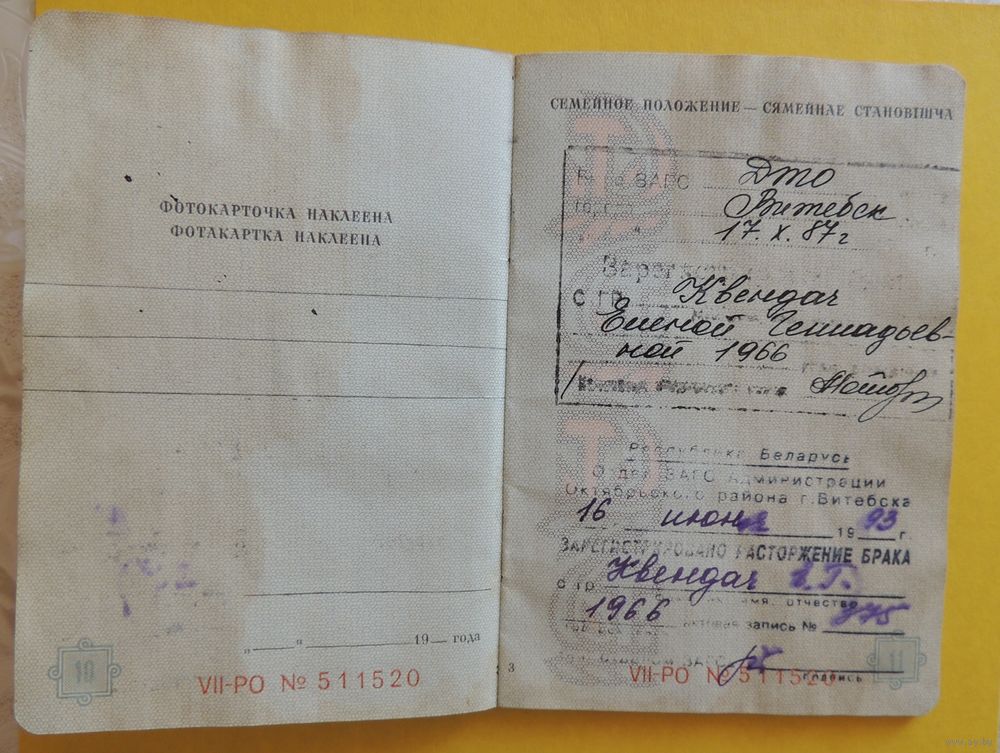 ФОТОКАРТОЧКА НАКЛЕЕНА
ФОТАКАРТКА НАКЛЕЕНА
„ “ 19 года
10
VII-РО № 511520
СЕМЕЙНОЕ ПОЛОЖЕНИЕ — СЯМЕЙНАЕ СТАНОВІШЧА
ЗАГС Дто
Витебск
17. X. 87 г
С ГР. Квендач
Еленой Геннадьев-
ной 1966
Республика Беларусь
Отдел ЗАГС Администрации
Октябрьского района г. Витебска
16 июня 1993 г.
ЗАРЕГИСТРИРОВАНО РАСТОРЖЕНИЕ БРАКА
с гр Квендач Е.Г.
имя, отчество
1966 актовая запись № 775
подпись
3
VII-РО № 511520
11
www.ay.by